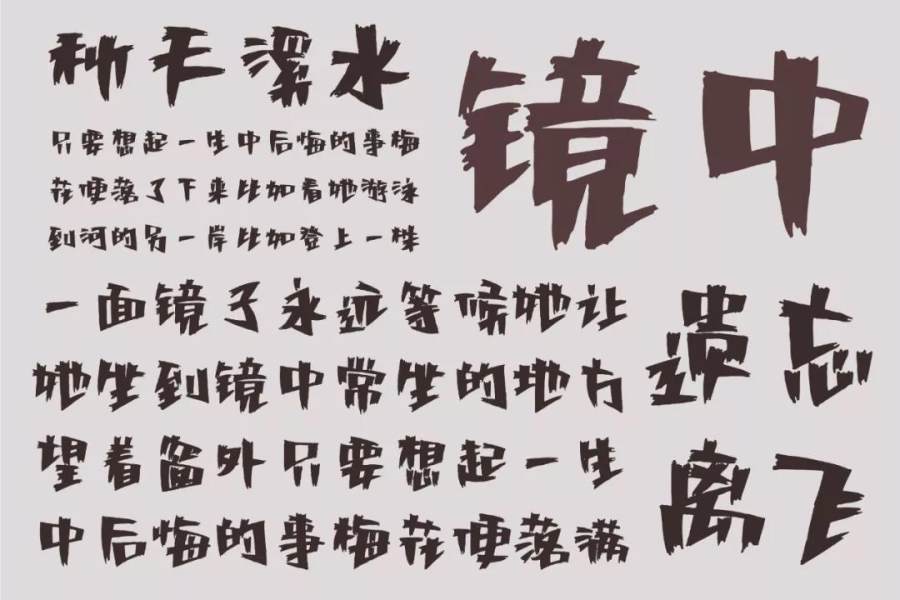 秋天溪水
只要想起一生中后悔的事梅
花便落了下来比如看她游泳
到河的另一岸比如登上一株
镜中
一面镜子永远等候她让
她坐到镜中常坐的地方
望着窗外只要想起一生
中后悔的事梅花便落满
遗忘
离飞